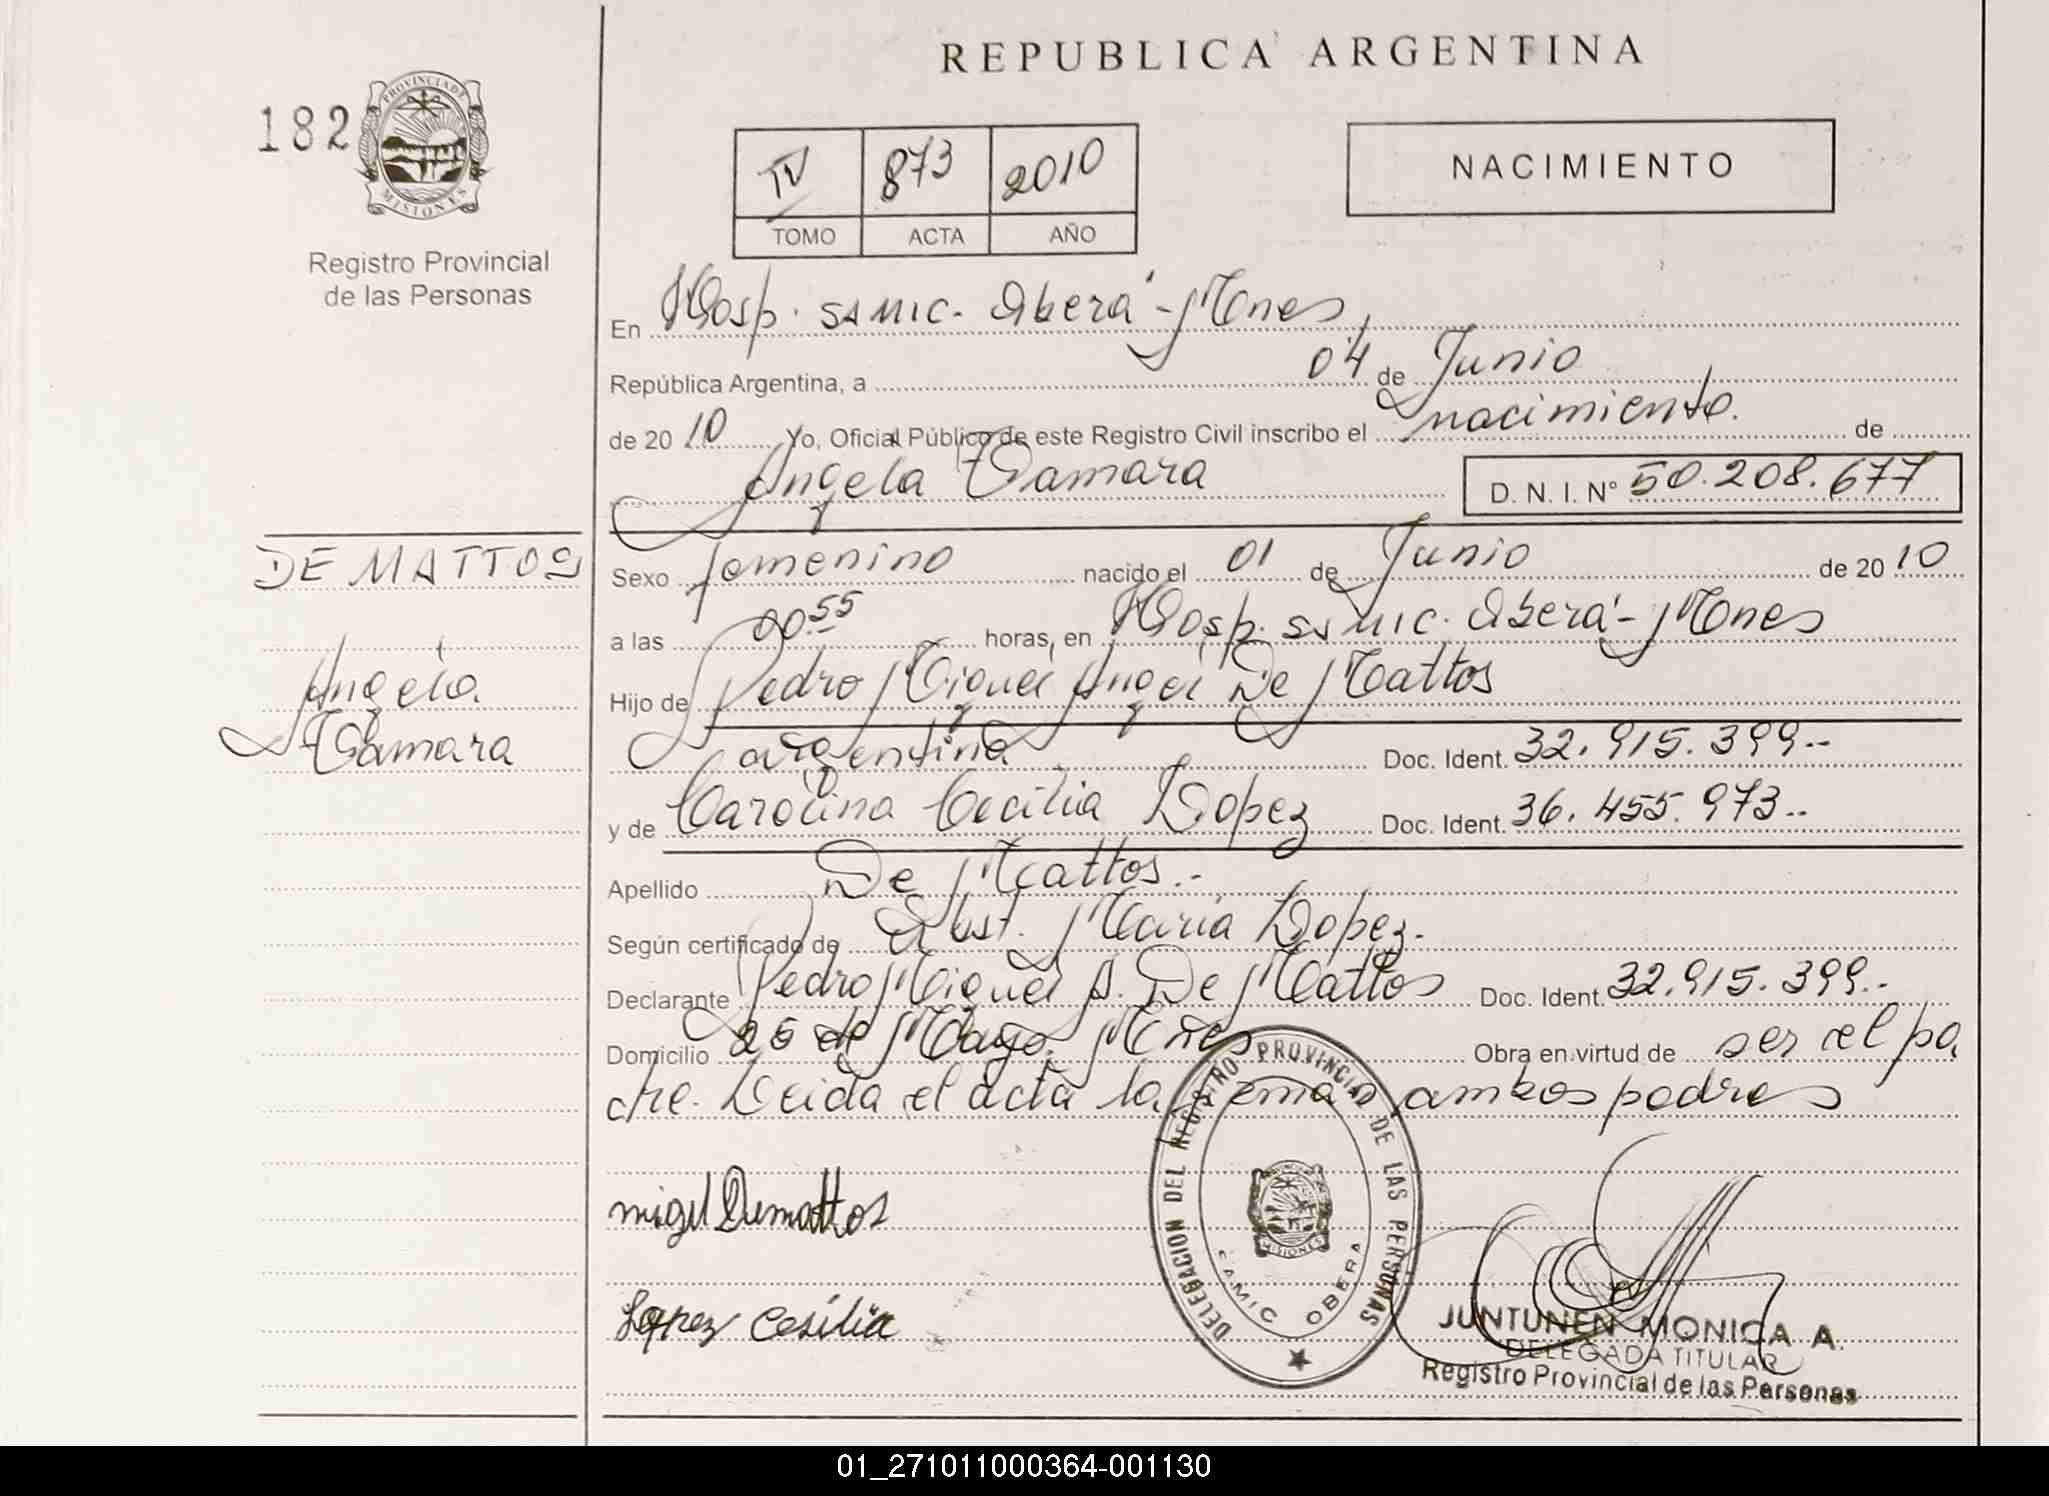 REPUBLICA ARGENTINA
182
PROVINCIA DE MISIONES
Registro Provincial
de las Personas
IV 873 2010
TOMO ACTA AÑO
NACIMIENTO
En Hosp. SAMIC. Oberá - Mnes
República Argentina, a 04 de Junio
de 20 10 Yo, Oficial Público de este Registro Civil inscribo el nacimiento. de
Angela Tamara D. N. I. Nº 50.208.677
DE MATTOS
Angela
Tamara
Sexo femenino nacido el 01 de Junio de 20 10
a las 00.55 horas, en Hosp. SAMIC. Oberá - Mnes
Hijo de Pedro Miguel Angel De Mattos
argentina Doc. Ident. 32.915.399.-
y de Carolina Cecilia Lopez Doc. Ident. 36.455.973.-
Apellido De Mattos.-
Según certificado de Obst. Maria Lopez.
Declarante Pedro Miguel A. De Mattos Doc. Ident. 32.915.399.-
Domicilio 25 de Mayo. Mnes Obra en virtud de ser el pa
dre. Leida el acta la firman ambos padres
migel Demattos
Lopez Cesilia
DELEGACION DEL REGISTRO PROVINCIAL DE LAS PERSONAS
MISIONES
SAMIC OBERA
JUNTUNEN MONICA A.
DELEGADA TITULAR
Registro Provincial de las Personas
01_271011000364-001130